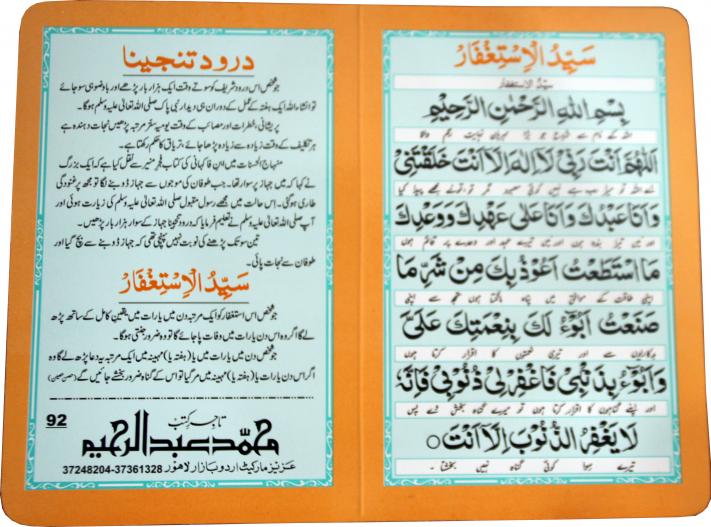 سَيِّدُ الْاِسْتِغْفَارُ
سیّدُ الاستغفار
بِسْمِ اللّٰهِ الرَّحْمٰنِ الرَّحِيْمِ
اللہ کے نام سے شروع جو بڑا مہربان نہایت رحم والا
اَللّٰهُمَّ اَنْتَ رَبِّيْ لَآ اِلٰهَ اِلَّا اَنْتَ خَلَقْتَنِيْ
اے اللہ تو میرا رب ہے نہیں کوئی معبود مگر تو، تونے مجھے پیدا کیا
وَاَنَا عَبْدُكَ وَاَنَا عَلٰى عَهْدِكَ وَوَعْدِكَ
اور میں تیرا بندہ ہوں اور میں تیرے عہد اور وعدے پر قائم ہوں
مَا اسْتَطَعْتُ اَعُوْذُ بِكَ مِنْ شَرِّ مَا
اپنی طاقت کے موافق میں پناہ مانگتا ہوں تجھ سے اپنی
صَنَعْتُ اَبُوْٓءُ لَكَ بِنِعْمَتِكَ عَلَيَّ
بدکاریوں سے اور تیری نعمتوں کا اقرار کرتا ہوں
وَاَبُوْٓءُ بِذَنْۢبِيْ فَاغْفِرْ لِيْ ذُنُوْبِيْ فَاِنَّهٗ
اور اپنے گناہوں کا اقرار کرتا ہوں تو میرے گناہ بخش دے پس
لَا يَغْفِرُ الذُّنُوْبَ اِلَّا اَنْتَ ○
تیرے سوا کوئی گناہ نہیں بخشتا۔
درود تنجینا
جو شخص اس درود شریف کو سوتے وقت ایک ہزار بار پڑھے اور باوضو ہی سو جائے
تو انشاء اللہ ایک ہفتہ کے عمل کے دوران ہی دیدار نبی پاک صلی اللہ تعالیٰ علیہ وسلم ہوگا۔
پریشانی، خطرات اور مصائب کے وقت یومیہ ستر مرتبہ پڑھیں نجات دہندہ ہے
ہر تکلیف کے وقت زیادہ سے زیادہ پڑھا جائے، تریاق کا حکم رکھتا ہے۔
منہاج الحسنات میں ابن فاکہانی کی کتاب فجر منیر سے نقل کیا ہے کہ ایک بزرگ
نے کہا کہ میں جہاز پر سوار تھا۔ جب طوفان کی موجوں سے جہاز ڈوبنے لگا تو مجھ پر غنودگی
طاری ہوگئی۔ اس حالت میں مجھے رسول مقبول صلی اللہ تعالیٰ علیہ وسلم کی زیارت ہوئی اور
آپ صلی اللہ تعالیٰ علیہ وسلم نے تعلیم فرمایا کہ درود تنجینا جہاز کے سوار ہزار بار پڑھیں۔
تین سو تک پڑھنے کی نوبت نہیں پہنچی تھی کہ جہاز ڈوبنے سے بچ گیا اور
طوفان سے نجات پائی۔
سَيِّدُ الْاِسْتِغْفَارُ
جو شخص اس استغفار کو ایک مرتبہ دن میں یا رات میں یقین کامل کے ساتھ پڑھ
لے گا اگر وہ اس دن یا رات میں وفات پا جائے گا تو وہ ضرور جنتی ہوگا۔
جو شخص دن میں یا رات میں یا (ہفتہ یا) مہینہ میں ایک مرتبہ یہ دعا پڑھ لے گا وہ
اگر اس دن یا رات یا (ہفتہ یا) مہینہ میں مر گیا تو اس کے گناہ ضرور بخشے جائیں گے (حصن حصین)
92
تاجر کتب
محمد عبدالرحیم
عزیز مارکیٹ اردو بازار لاہور 37248204-37361328